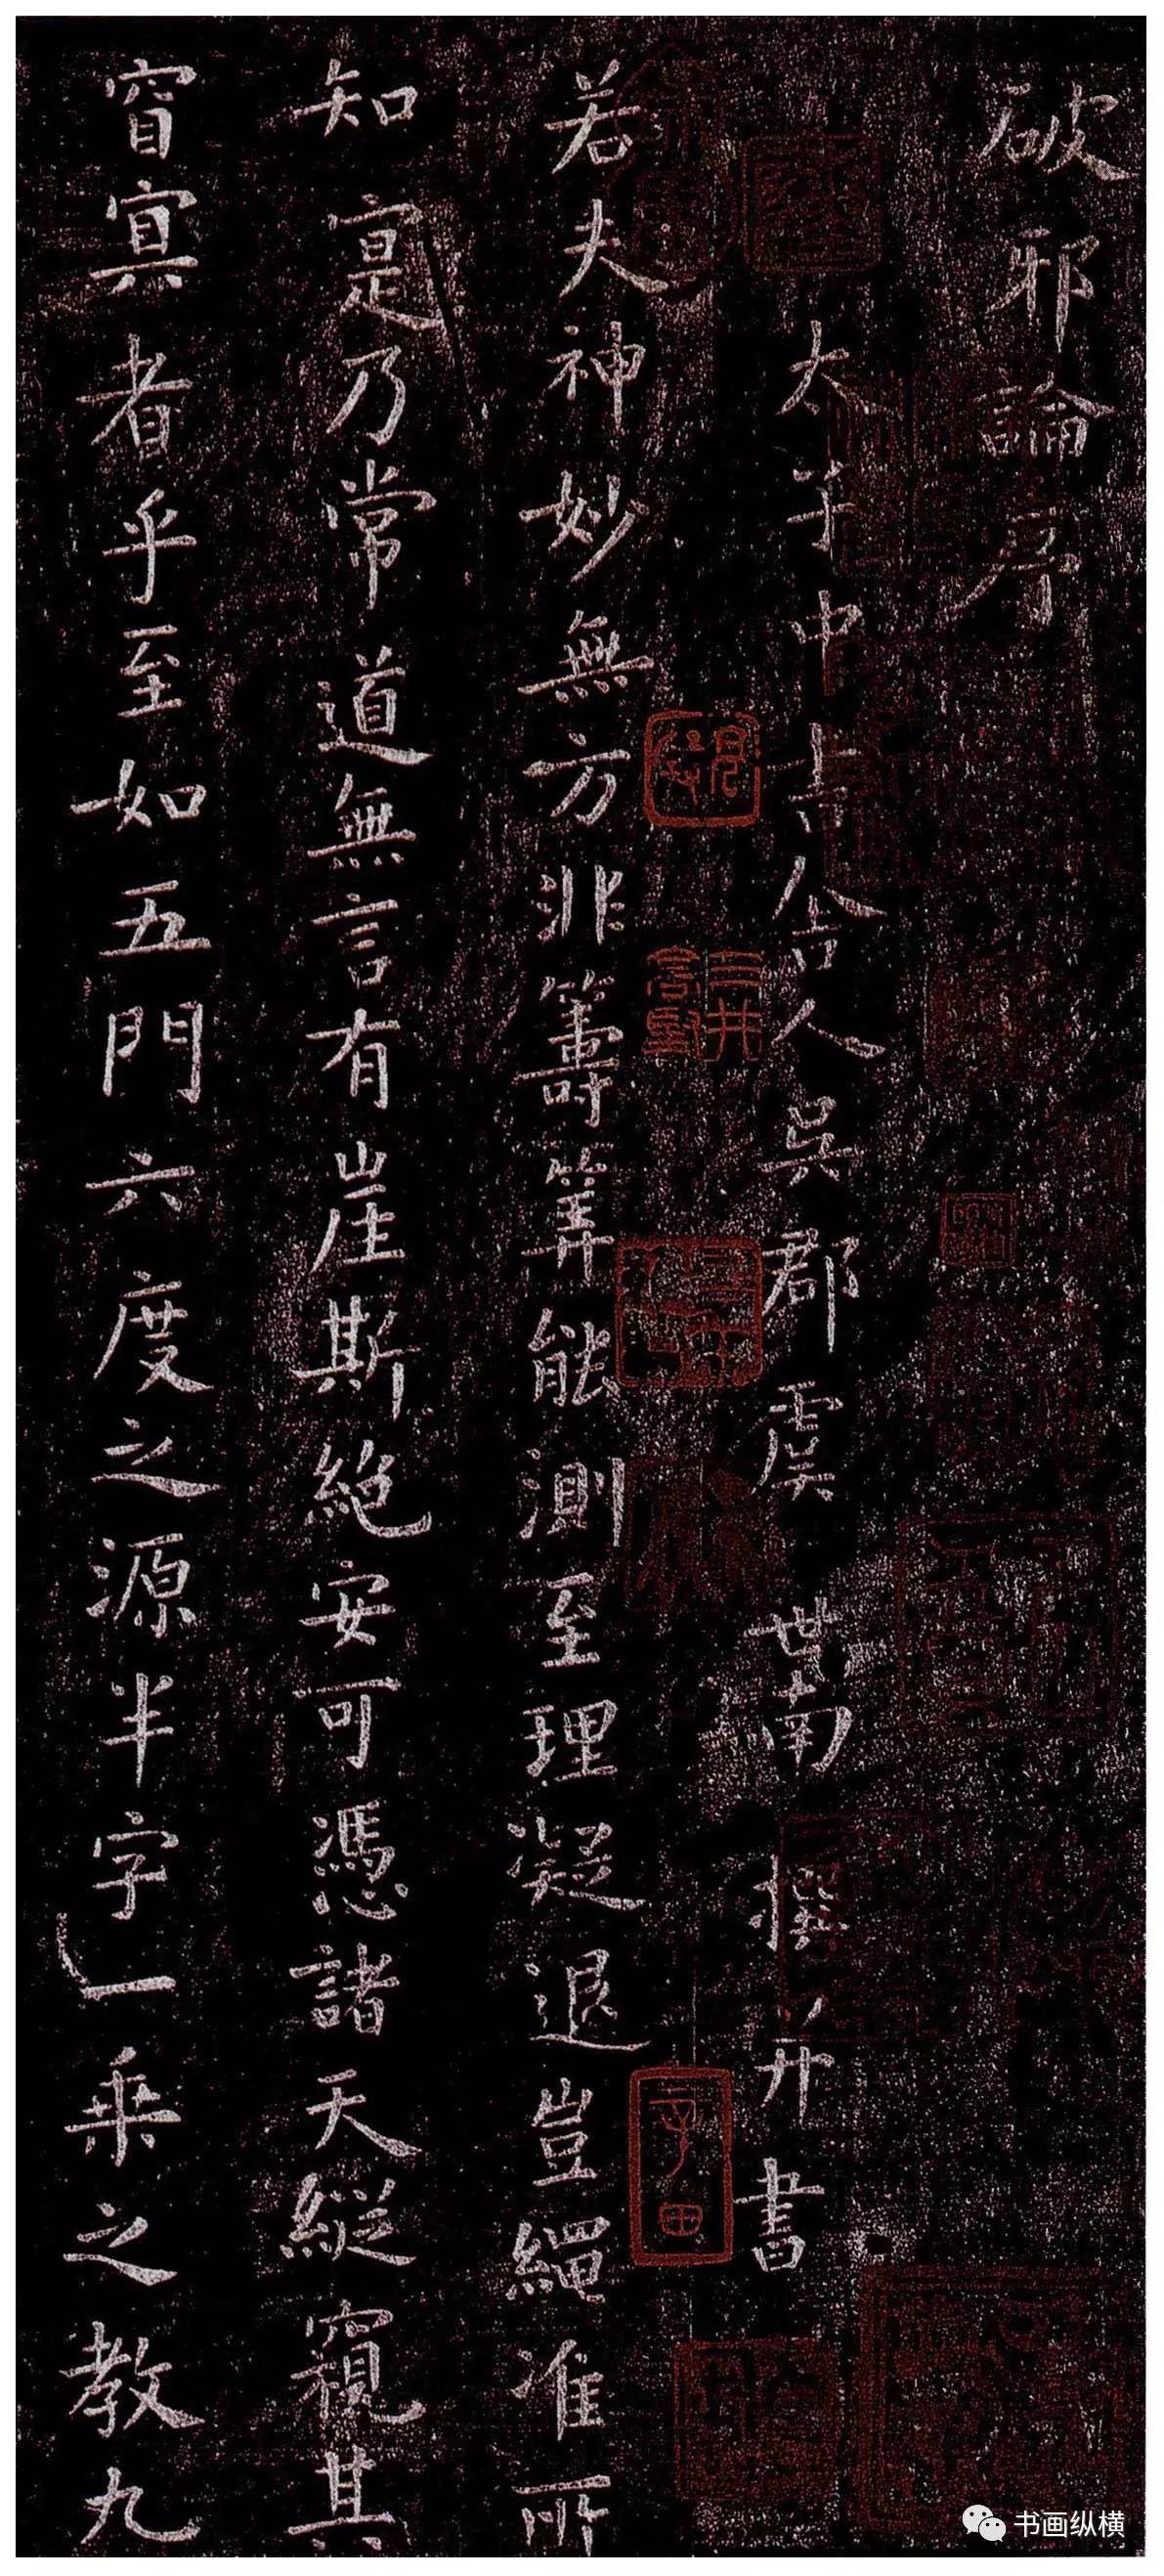 破邪論序
太子中書舍人吳郡虞世南撰并書
若夫神妙無方非籌筭能測至理凝退豈繩准所
知寔乃常道無言有崖斯絶安可憑諸天縱窺其
窅冥者乎至如五門六度之源半字一乗之教九
书画纵横